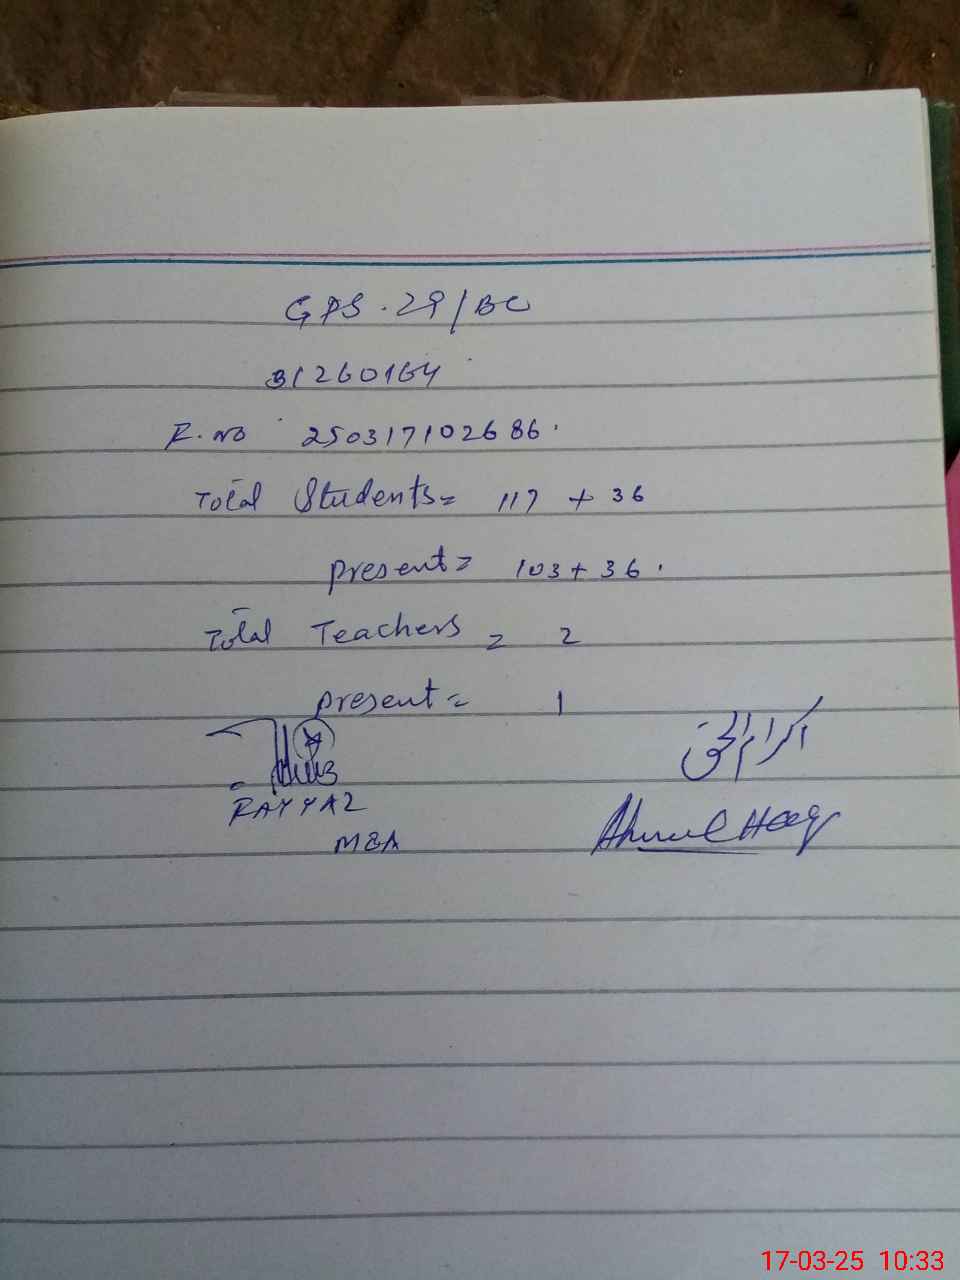 GPS.29/BC
31260164
R.no 250317102686.
Total Students= 117 + 36
Present= 103+36.
Total Teachers = 2
Present= 1
اکرام الحق
RAYYAZ
MEA
17-03-25 10:33